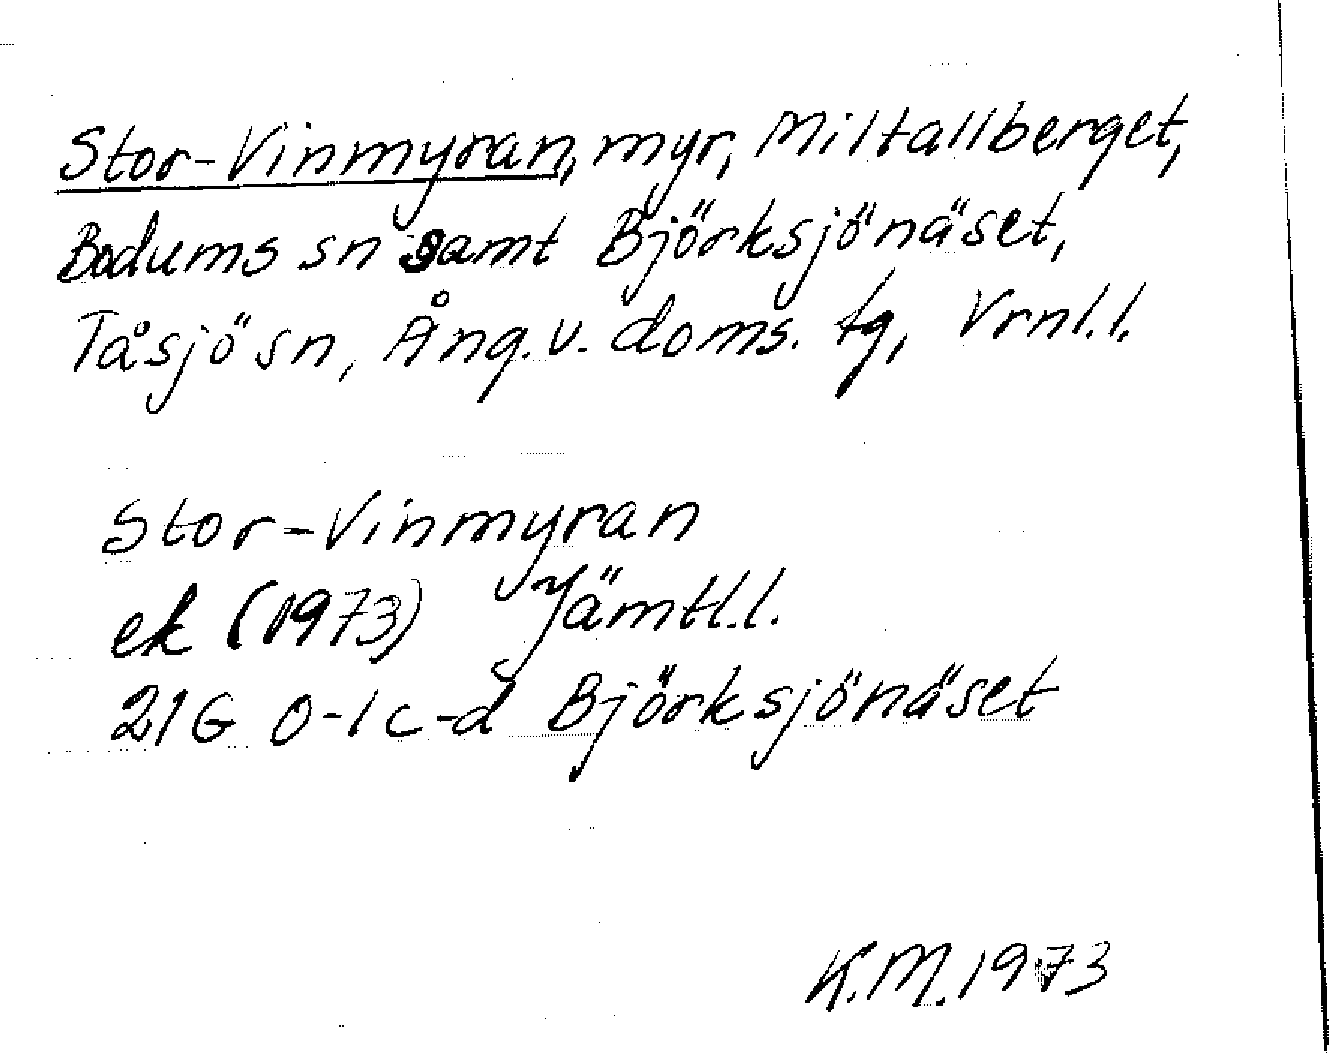 Stor-Vinmyran, myr, Miltallberget,
Bodums sn samt Björksjönäset,
Tåsjö sn, Ång. v. doms. tg, Vrnl.l.
Stor-Vinmyran
ek (1973) Jämtl.l.
21G 0-1c-d Björksjönäset
K.M. 1973